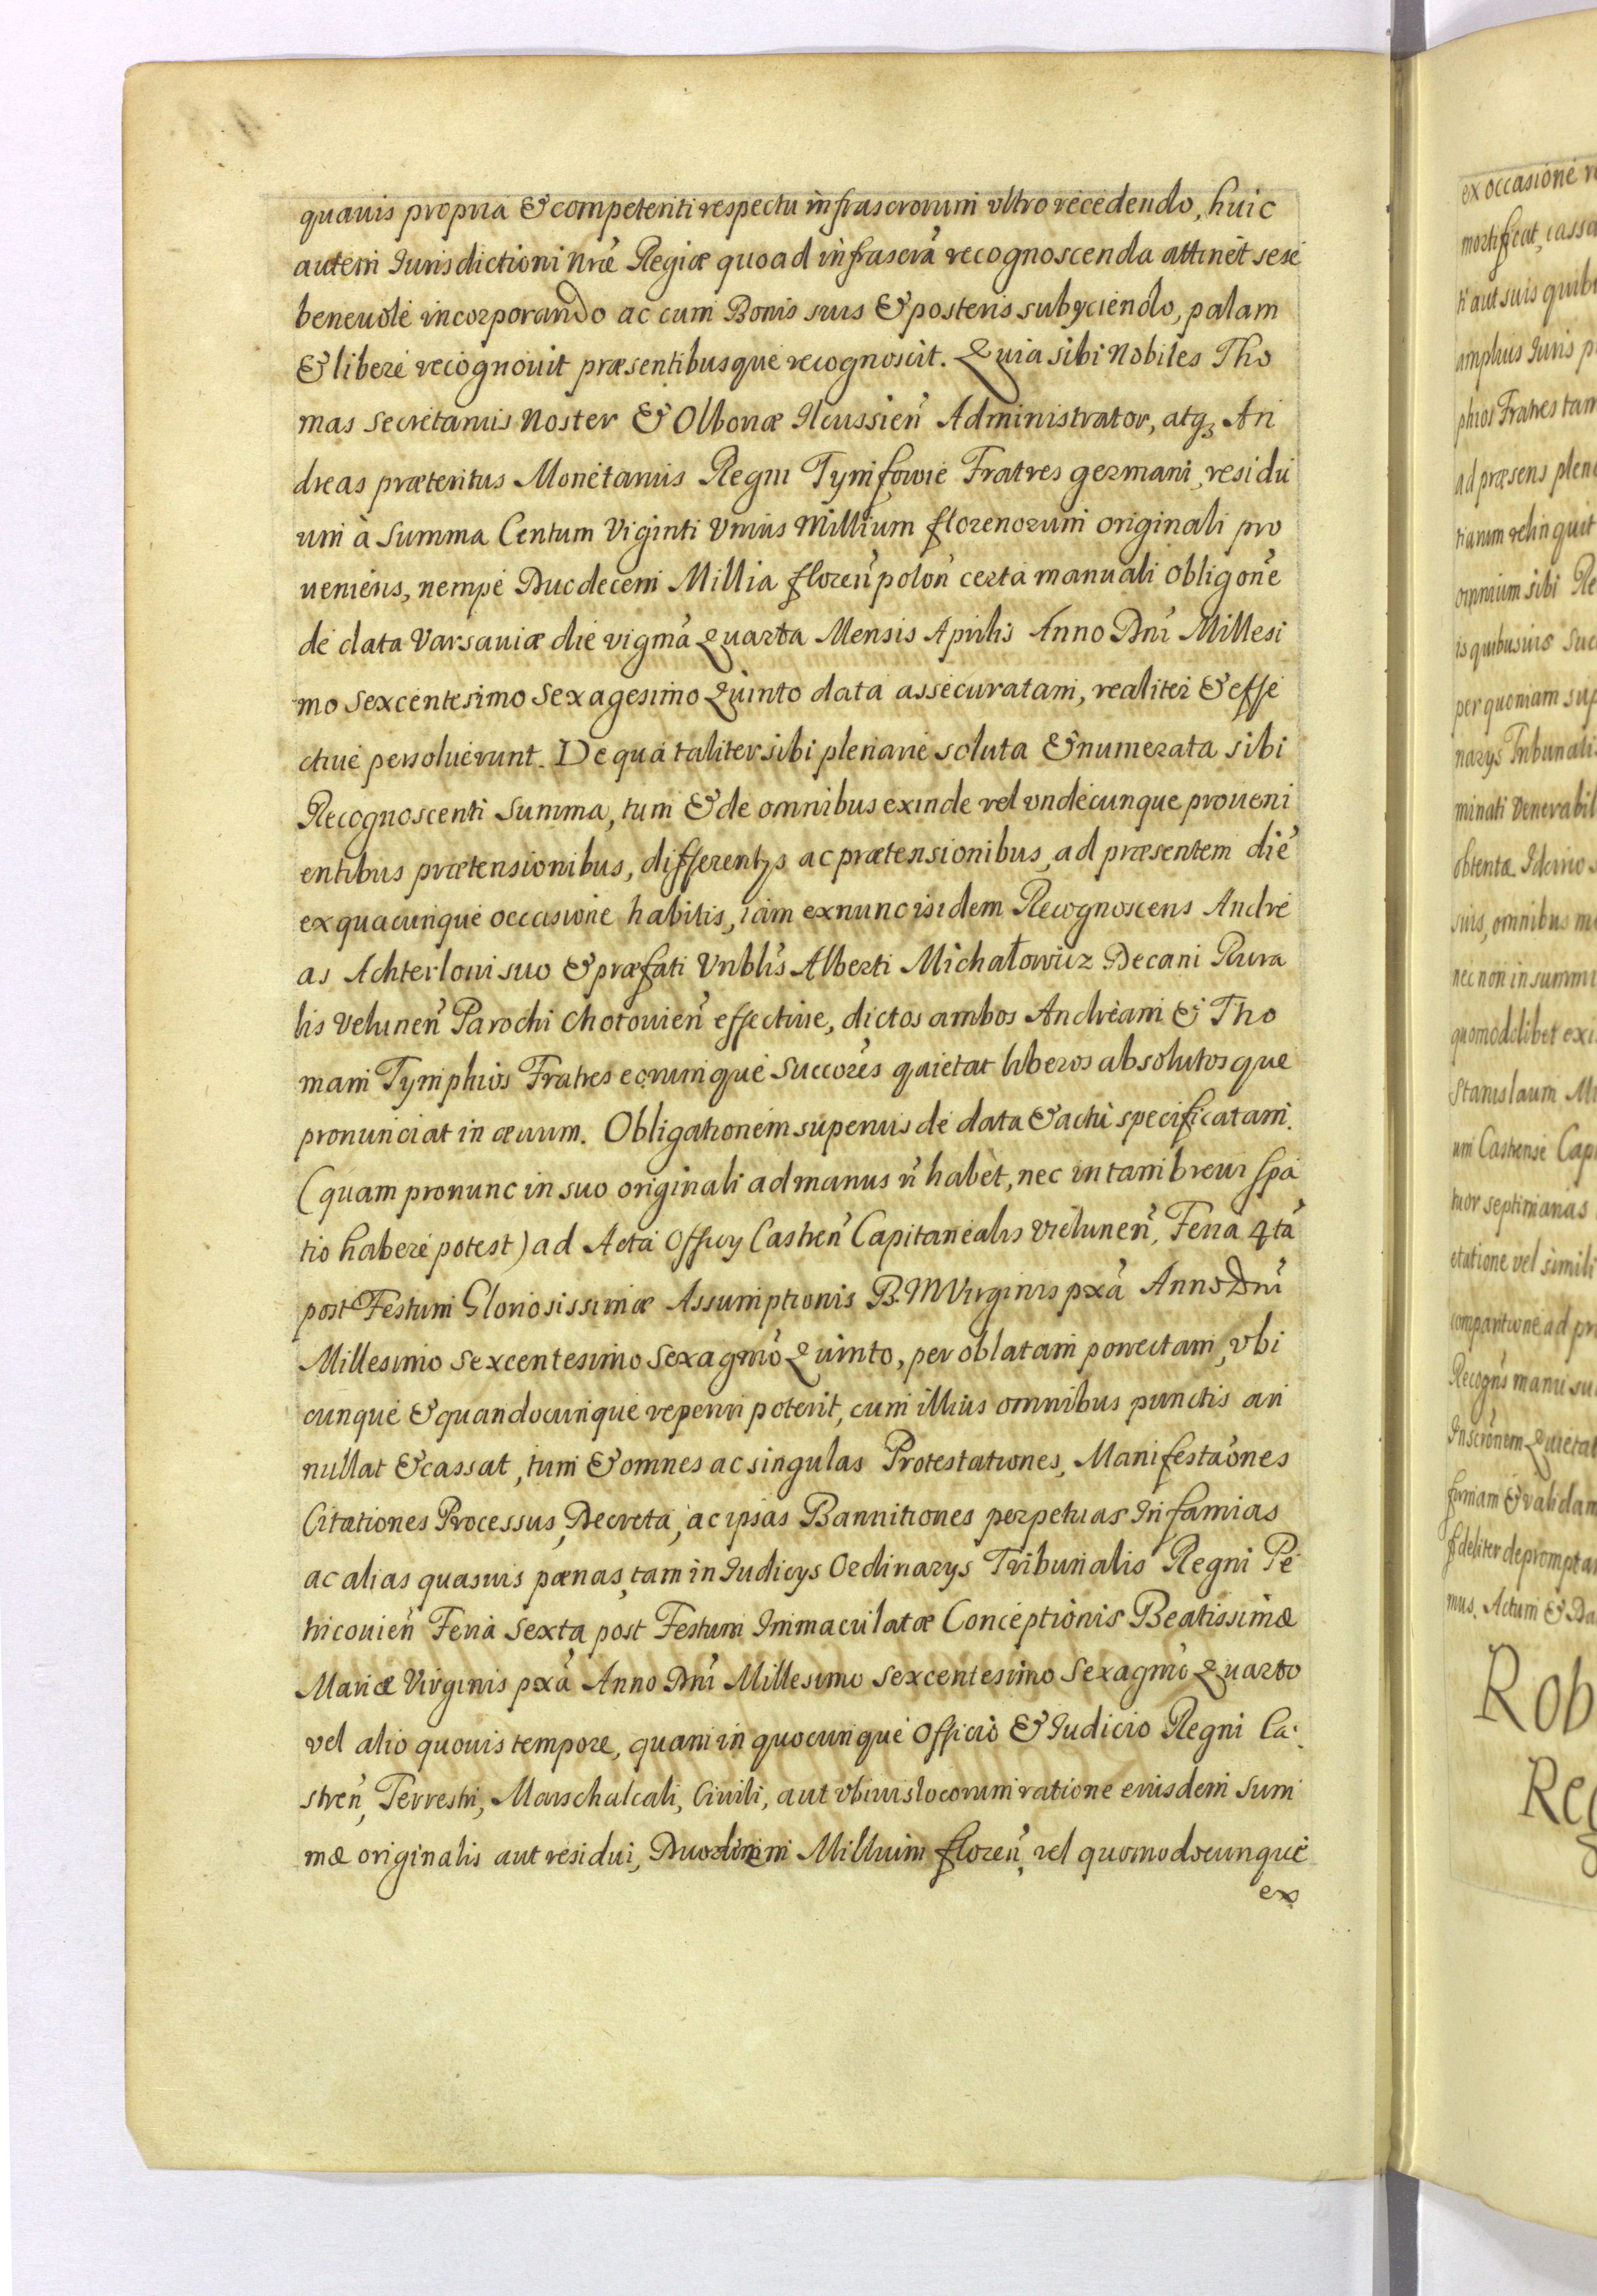 quavis propria & competenti respectu infrascrorum ultro recedendo, huic
autem Jurisdictioni nrae Regiae quoad infrascra recognoscenda attinet sese
benevole incorporando ac cum Bonis suis & posteris subyciendo, palam
& libere recognovit praesentibusque recognoscit. Quia sibi Nobiles Tho
mas Secretarius Noster & Olborae Ilcussien̄ Administrator, atqз An
dreas praeteritus Monetarius Regni Tymfowie Fratres germani, residu
um à Summa Centum Viginti Unius Millium florenorum originali pro
veniens, nempe Duodecem Millia floren̄ polon̄ certa manuali obligone
de data Varsaviae die vigma Quarta Mensis Aprilis Anno Dni Millesi
mo Sexcentesimo Sexagesimo Quinto data assecuratam, realiter & effe
ctive persolverunt. De qua taliter sibi plenarie soluta & numerata sibi
Recognoscenti Summa, tum & de omnibus exinde vel undecunque proveni
entibus praetensionibus, differentys ac praetensionibus, ad praesentem die
ex quacunque occasione habitis, iam exnunc isidem Recognoscens Andre
as Achterlovi suo & praefati Vnblis Alberti Michałowicz Decani Rura
lis Velunen̄ Parochi Chotovien̄ effective, dictos ambos Andream & Tho
mam Tymphios Fratres eorumque Succores quietat liberos absolutosque
pronunciat in aevum. Obligationem superius de data & actu specificatam.
(quam pronunc in suo originali ad manus n̄ habet, nec in tam brevi spa
tio habere potest) ad Acta Officy Castren̄ Capitanealis Vielunen̄, Feria 4ta
post Festum Gloriosissimae Assumptionis B. M Virginis pxa Anno Dni
Millesimo Sexcentesimo Sexagmo Quinto, per oblatam porrectam, ubi
cunque & quandocunque reperiri poterit, cum illius omnibus punctis an
nullat & cassat, tum & omnes ac singulas Protestationes, Manifestaones
Citationes Processus, Decreta, ac ipsas Bannitiones perpetuas Infamias
ac alias quasvis paenas, tam in Judicys Ordinarys Tribunalis Regni Pe
tricovien̄ Feria Sexta post Festum Immaculatae Conceptionis Beatissimae
Mariae Virginis pxa Anno Dni Millesimo Sexcentesimo Sexagmo Quarto
vel alio quovis tempore, quam in quocunque Officio & Judicio Regni Ca:
stren̄, Terrestri, Marschalcali, Civili, aut ubivis locorum ratione eiusdem Sum
mae originalis aut residui, Duodecim Millium floren̄, vel quomodocunque
ex
ex occasione
mortificat, cassa
ti aut suis quib
amplius Juris p
phios Fratres tam
ad praesens plen
tiarum relinquit
omnium sibi Re
is quibusvis Suc
per quoniam sup
narys Tribunali
minati Venerabil
obtentae Idcirco
suis, omnibus m
nec non in summ
quomodolibet exi
Stanislaum Mi
um Castrense Cap
tuor septimanas
etatione vel simili
comparitione ad pr
Recogns manu su
Inscronem Quietat
firmam & validam
fideliter depromptam
mus. Actum & Da
Rob
Reg